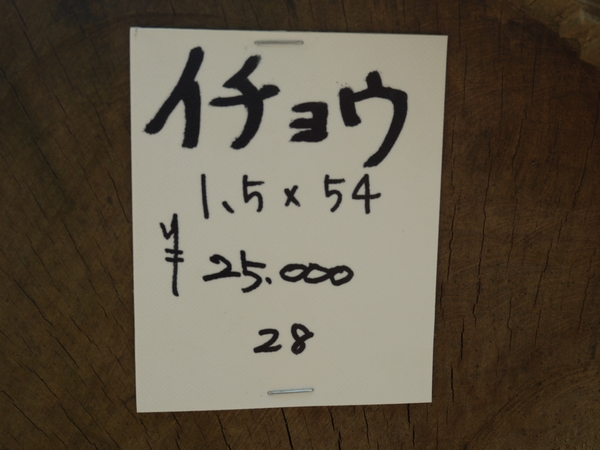 イチョウ
1.5 x 54
¥ 25.000
28